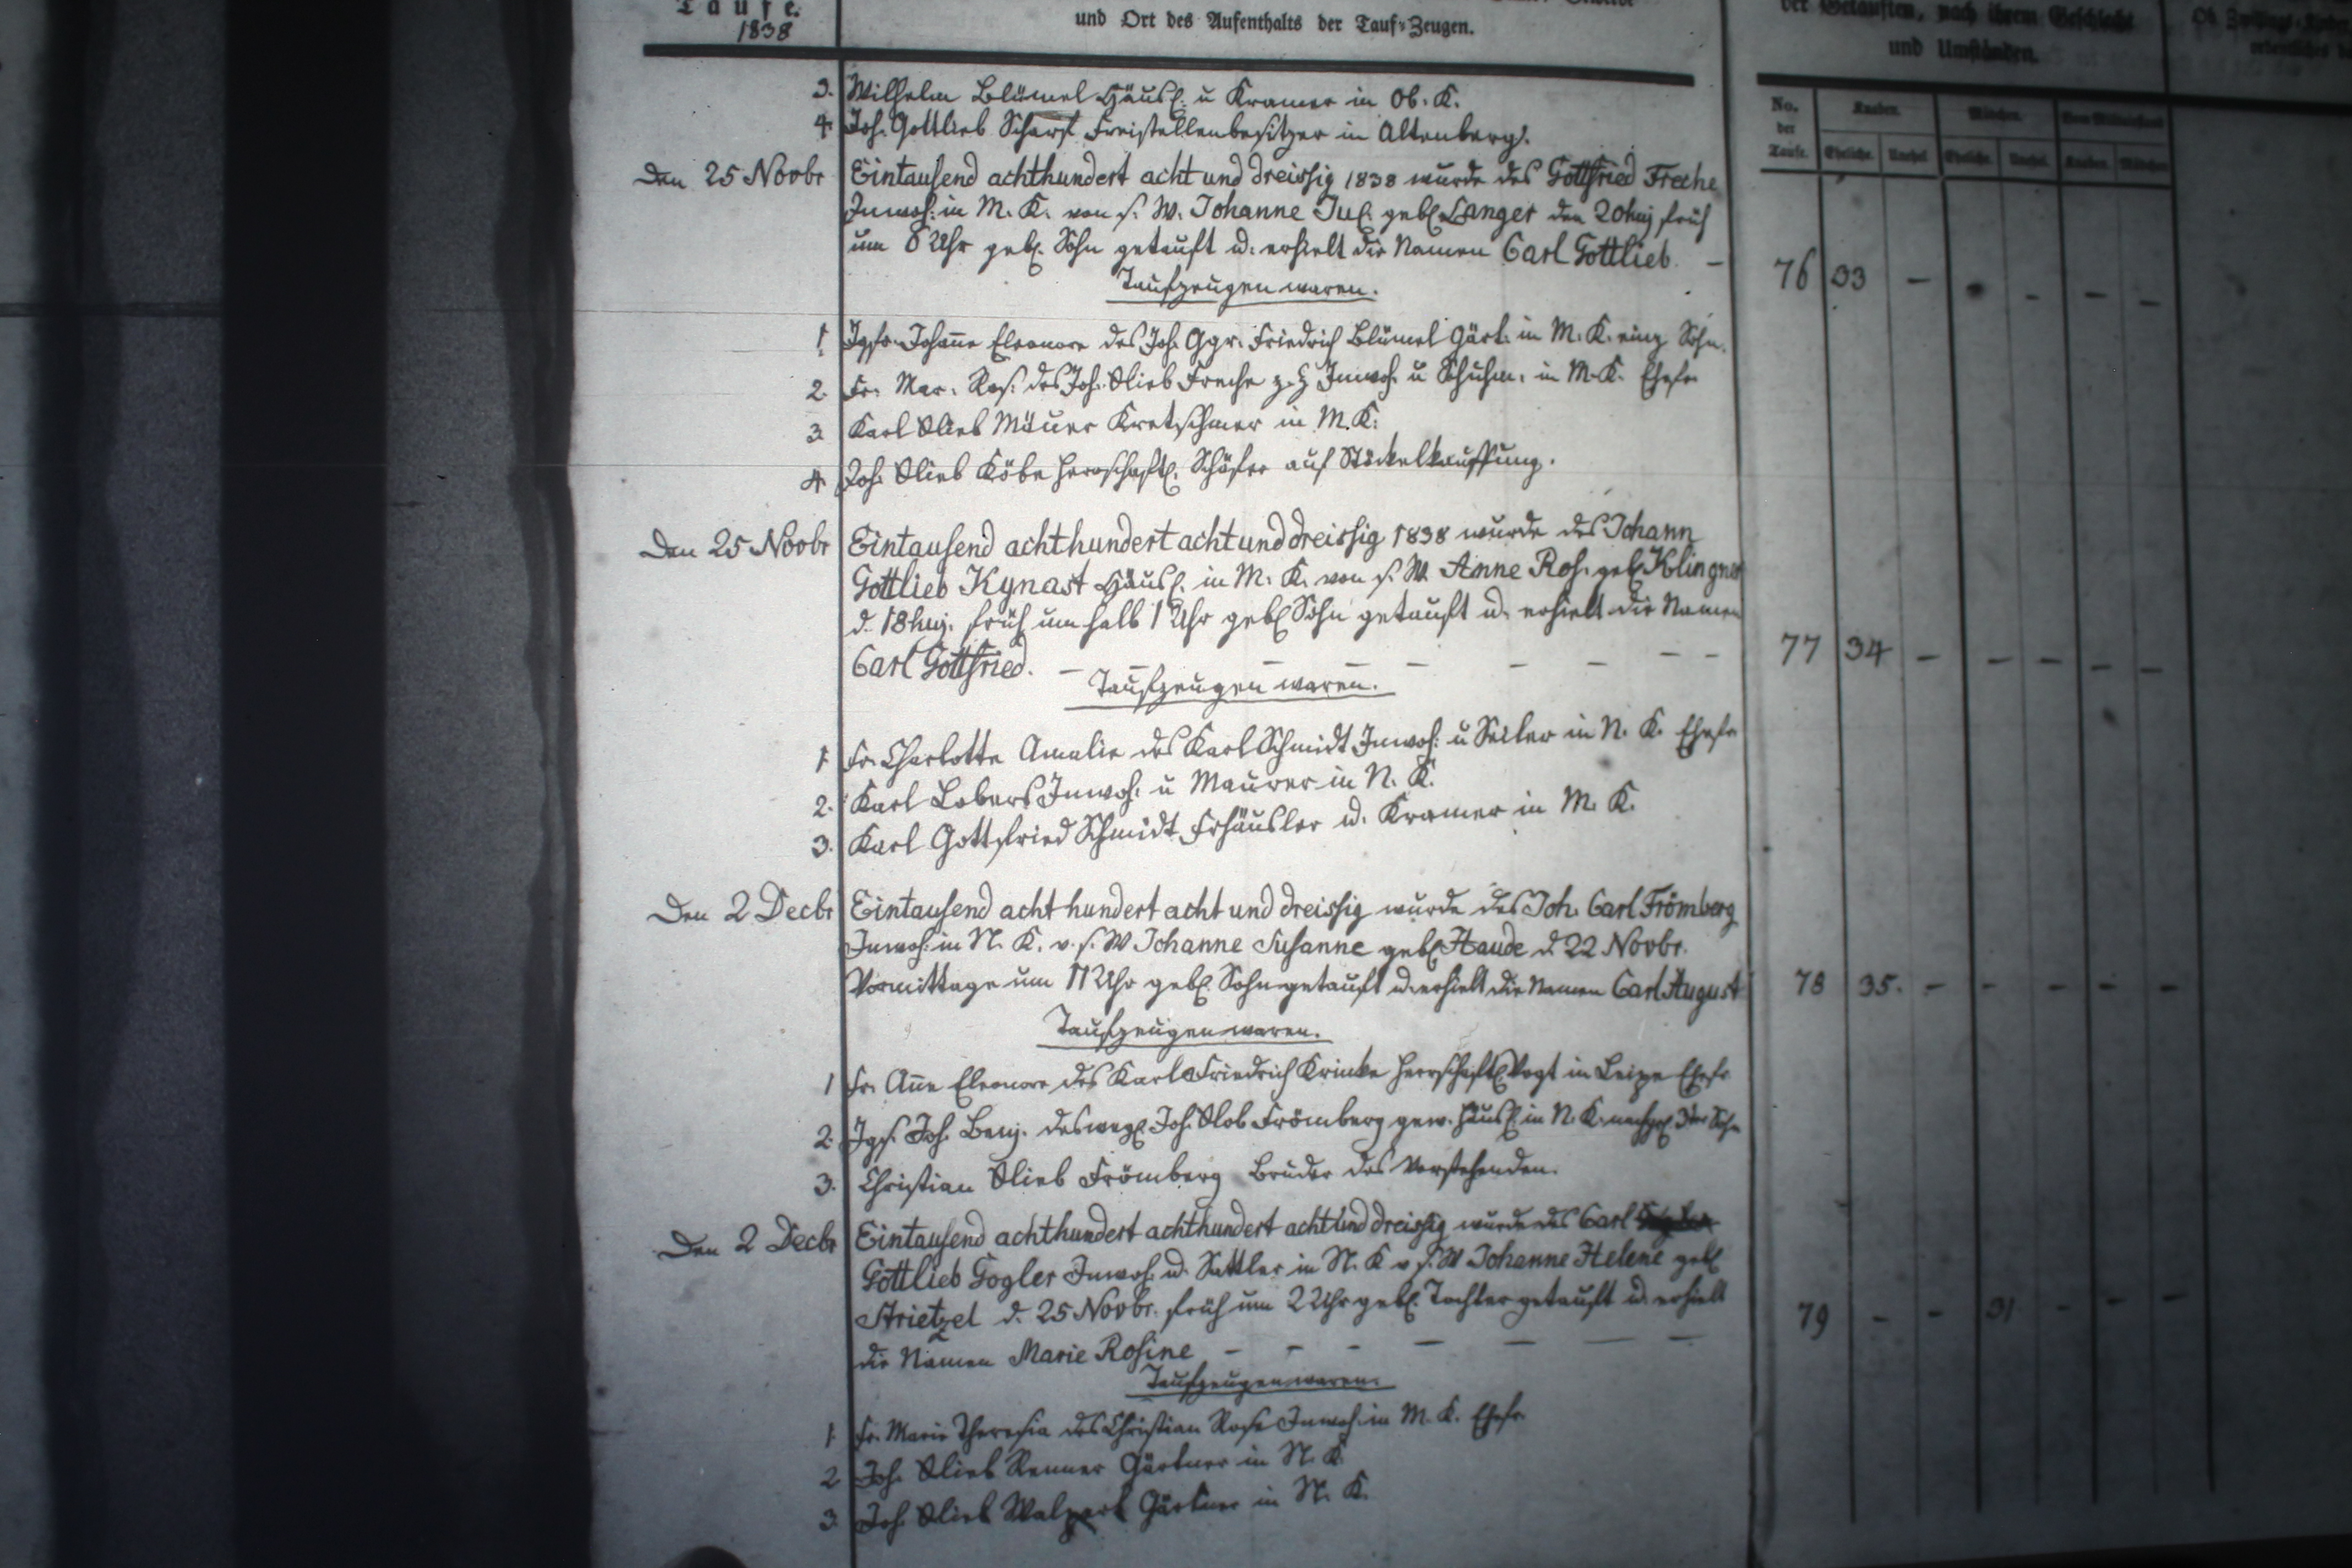 Taufe.
1838
und Ort des Aufenthalts der Tauf-Zeugen.
der Getauften, nach ihrem Geschlecht
und Umständen.
No. der Taufe.
Knaben. Mädchen.
Ehelich. Unehel. Ehelich. Unehel. Knaben. Mädchen.
3. Wilhelm Blümel Häusl. u Kramer in Ob. K.
4. Joh. Gottlieb Scharf Freistellenbesitzer in Altenberg.
Den 25 Novbr Eintausend achthundert acht und dreissig 1838 wurde des Gottfried Freche
Inwoh. in M. K. von s. W. Johanne Jul. geb. Langer den 20 huj früh
um 8 Uhr geb. Sohn getauft u. erhielt die Namen Carl Gottlieb. –
76 33 – – – – –
Taufzeugen waren.
1. Jgfr. Johanne Eleonore des Joh. Ggr. Friedrich Blümel Gärt. in M. K. einz
2. Fr. Mar. Ros. des Joh. Glieb Freche z. Z Inwoh. u Schuhm. in M. K. Ehefr.
3. Karl Glieb Mäuer Kretschmer in M. K.
4. Joh. Glieb Köbe herrschaftl. Schäfer auf Stöckelkauffung.
Den 25 Novbr Eintausend achthundert acht und dreissig 1838 wurde des Johann
Gottlieb Kynast Häusl. in M. K. von s. W. Anne Ros. geb Klingner
d. 18 huj. früh um halb 1 Uhr geb Sohn getauft u. erhielt die Namen
Carl Gottfried. – – – – – – – –
77 34 – – – – –
Taufzeugen waren.
1. Fr. Charlotte Amalie des Karl Schmidt Inwoh. u Seiler in N. K. Ehefr
2. Karl Lobers Inwoh. u Maurer in N. K.
3. Karl Gottfried Schmidt Frhäusler u. Kramer in M. K.
Den 2 Decbr Eintausend acht hundert acht und dreissig wurde des Joh. Carl Frömberg
Inwoh. in N. K. v. s. W Johanne Susanne geb Haude d 22 Novbr.
Vormittage um 11 Uhr geb. Sohn getauft u. erhielt die Namen Carl August
78 35. – – – – –
Taufzeugen waren.
1 Fr. Anne Eleonore des Karl Friedrich Krinke herrschaftl Vogt in Leipe Ehefr
2. Jgs. Joh. Benj. des Joh. Glob Frömberg gew. Häusl. in N. K. 3ter Sohn
3. Christian Glieb Frömberg Bruder des Vorstehenden.
Den 2 Decbr Eintausend achthundert achthundert acht und dreissig wurde des Carl
Gottlieb Gogler Inwoh. u. Sattler in N. K v s. W Johanne Helene geb
Strietzel d. 25 Novbr. früh um 2 Uhr geb. Tochter getauft u. erhielt
die Namen Marie Rosine – – – – – – –
79 – – 31 – – –
Taufzeugen waren.
1. Fr. Marie Theresia des Christian Rose Inwoh. in M. K. Ehefr.
2 Joh. Glieb Renner Gärtner in N. K
3. Joh. Glieb Gärtner in N. K.